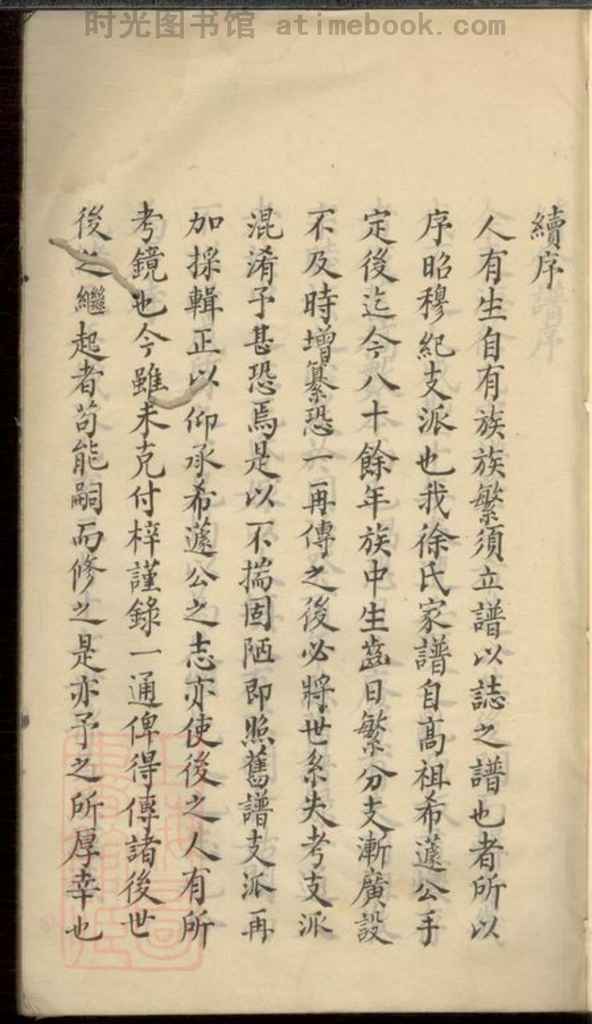 时光图书馆 - atimebook.com
續序
人有生自有族族繁須立譜以誌之譜也者所以
序昭穆紀支派也我徐氏家譜自高祖希蘧公手
定後迄今八十餘年族中生齒日繁分支漸廣設
不及時增纂恐一再傳之後必將世系失考支派
混淆予甚恐焉是以不揣固陋即照舊譜支派再
加採輯正以仰承希蘧公之志亦使後之人有所
考鏡也今雖未克付梓謹錄一通俾得傳諸後世
後之繼起者苟能嗣而修之是亦予之所厚幸也